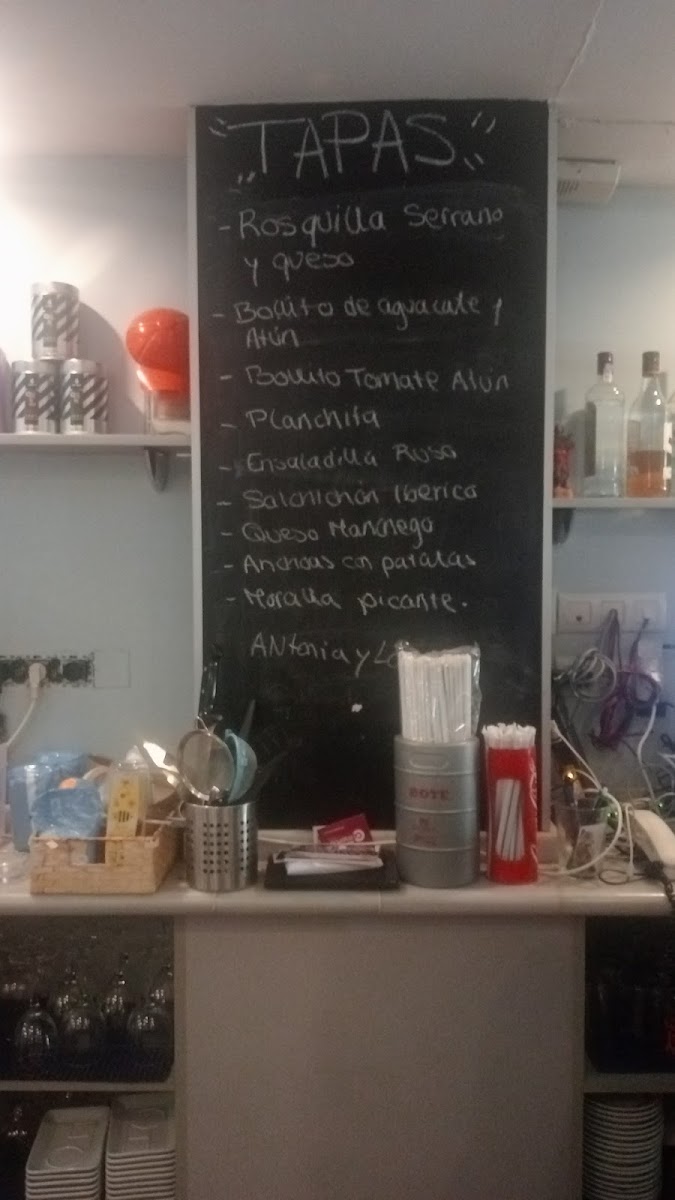 TAPAS
- Rosquilla Serrano
y queso
- Bollito de aguacate y
Atún
- Bollito Tomate Atún
- Planchita
- Ensaladilla Rusa
- Salchichón Iberico
- Queso Manchego
- Anchoas con patatas
- Moralla picante.
ANtonia y
BOTE